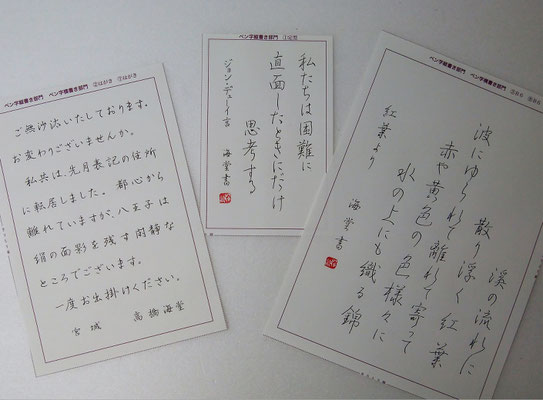 ペン字縦書き部門 ペン字横書き部門 ②はがき ⑦はがき
ご無沙汰いたしております。
お変わりございませんか。
私共は、先月表記の住所
に転居しました。都心から
離れていますが、八王子は
絹の面影を残す閑静な
ところでございます。
一度お出掛けください。
宮城 高橋海堂
ペン字縦書き部門
私たちは困難に
直面したときにだけ
思考する
ジョン・デューイ言
海堂書
ペン字縦書き部門 ペン字横書き部門
溪の流れに
散り浮く紅葉
波にゆられて離れて寄って
赤や黄色の色様々に
水の上にも織る錦
紅葉より
海堂書